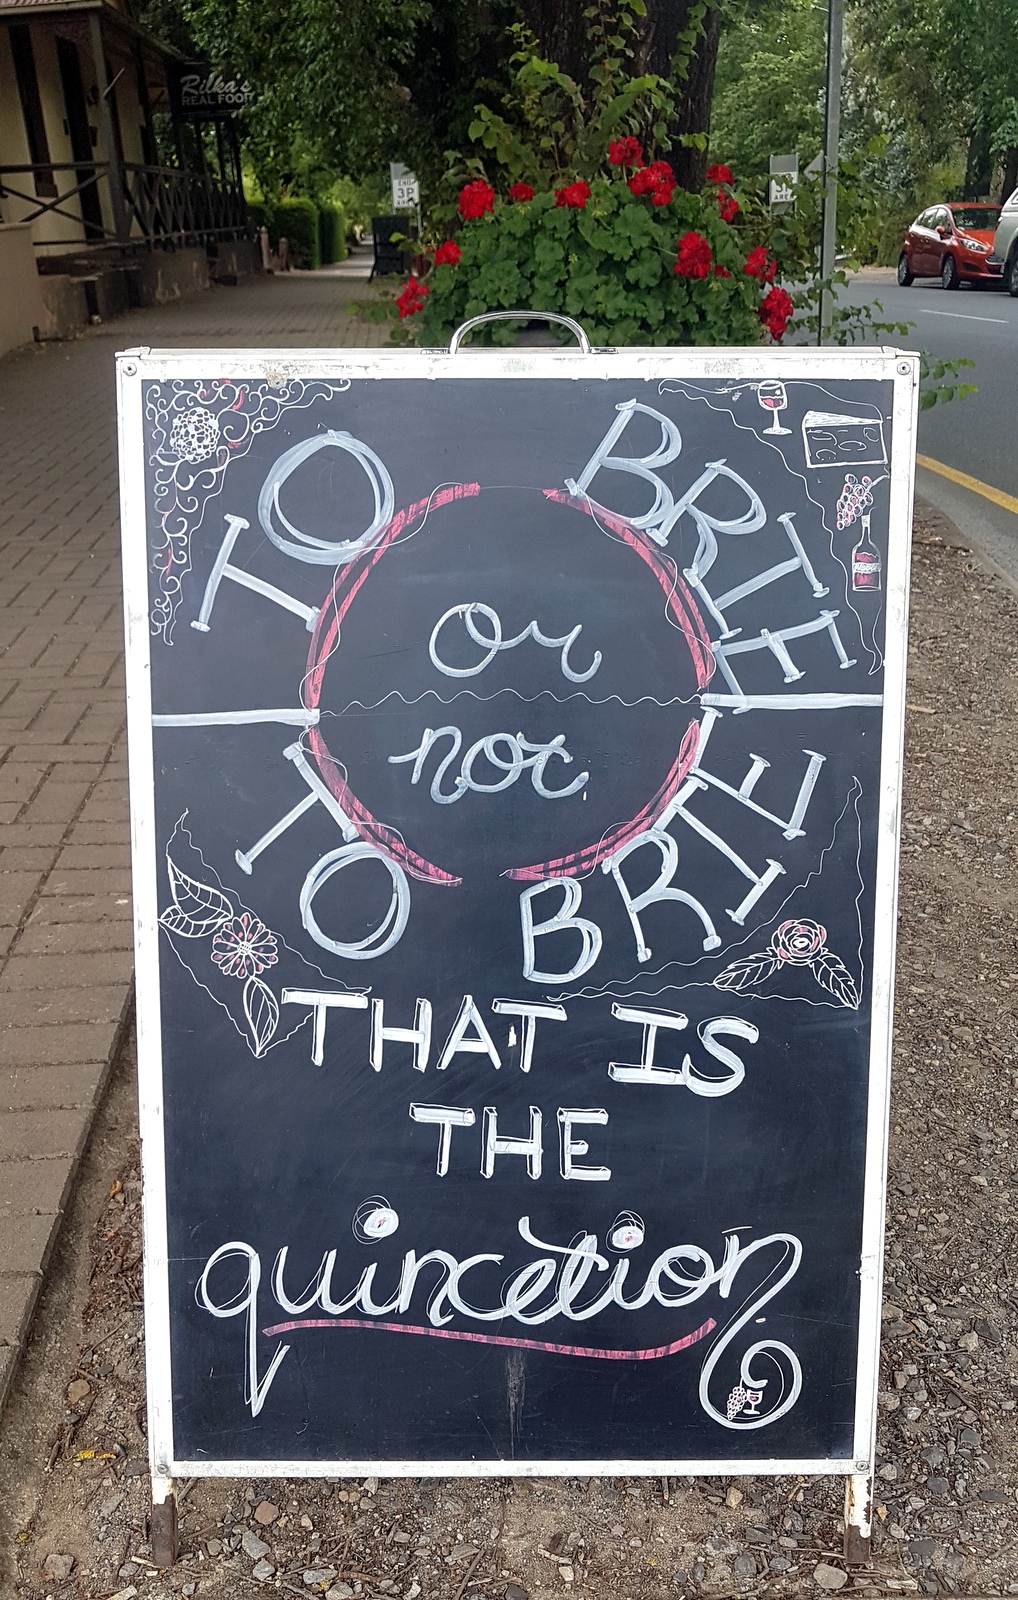 Rilka's
REAL FOOD
END
3P
AREA
3P
AREA
TO BRIE
or
not
TO BRIE
THAT IS
THE
quincetion